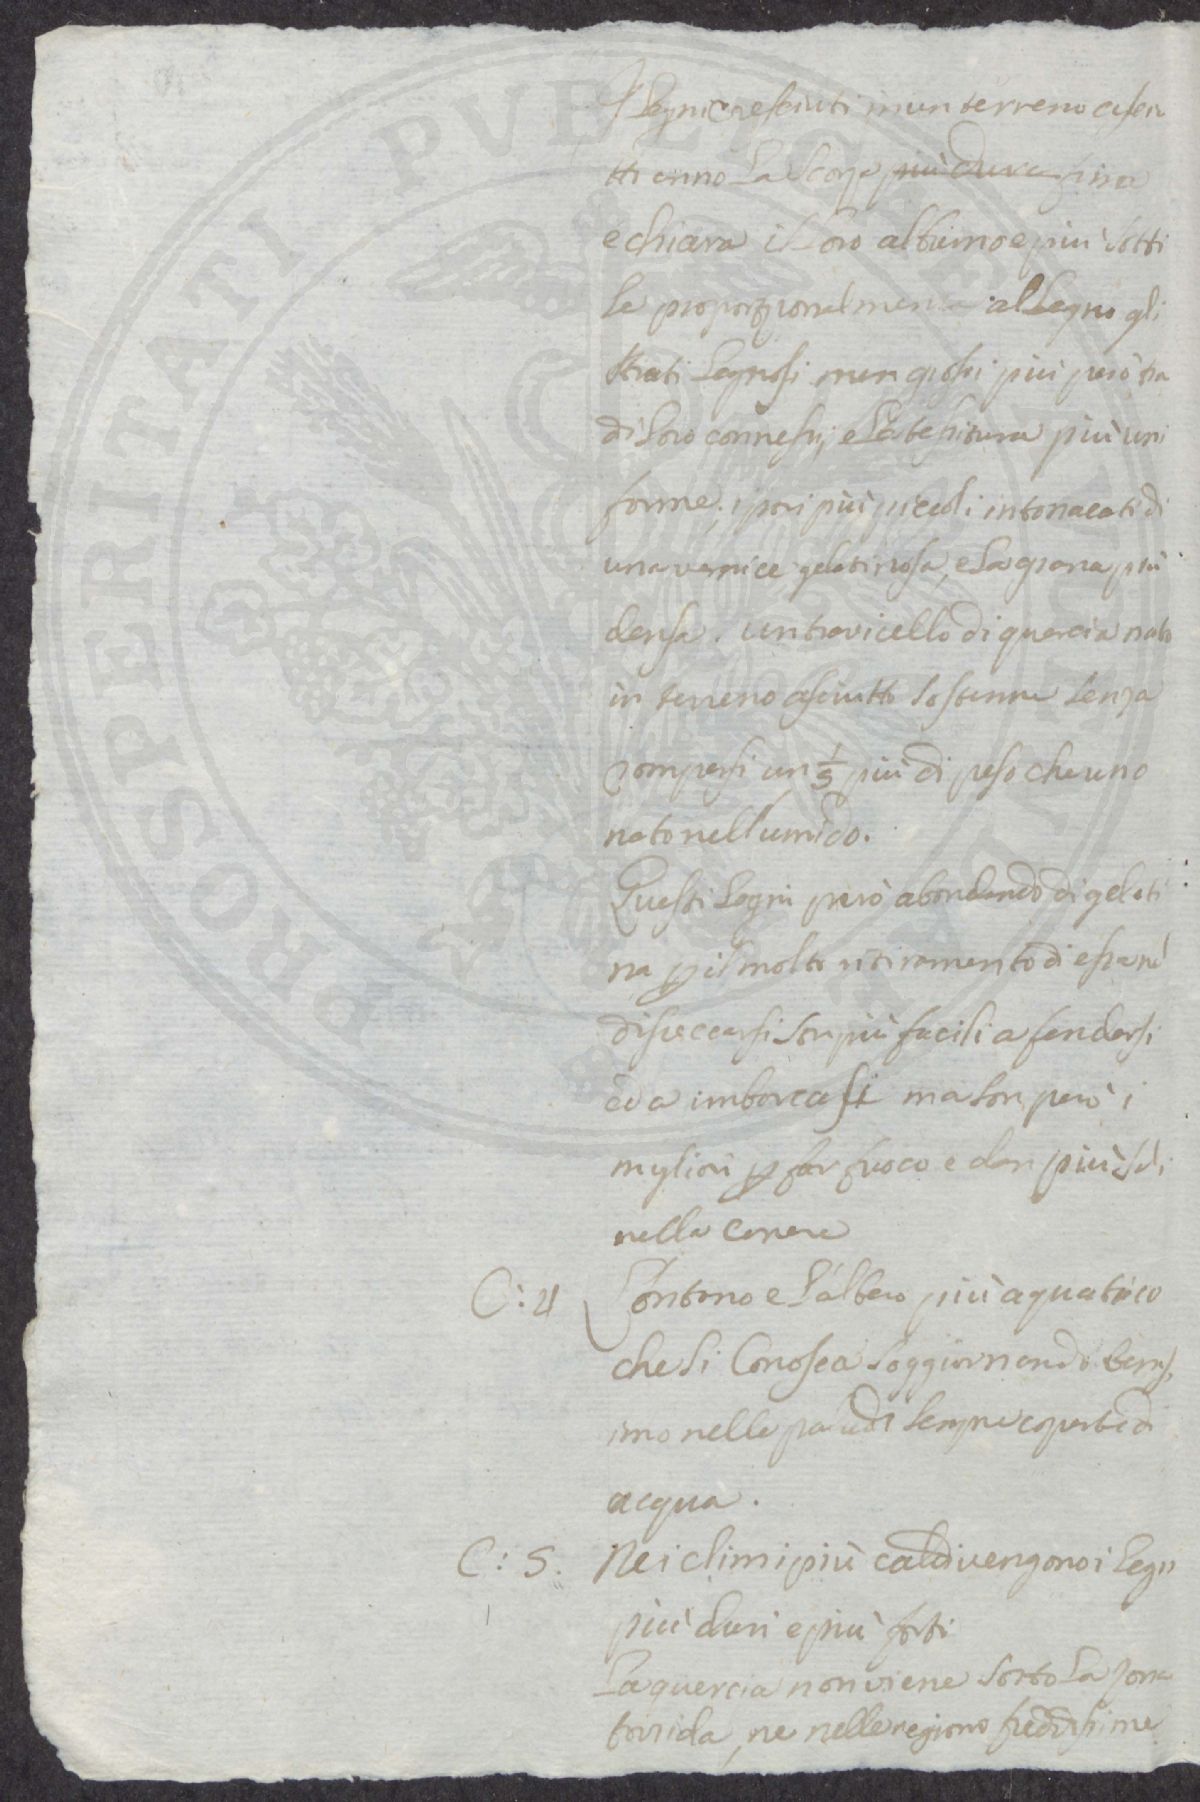 I Legni cresciuti in un terreno asciu
tto anno La Scorza più dura fina
e chiara il Loro alburno e più sotti
le proporzionalmente al Legno gli
strati Legnosi men grossi più però tra
di Loro connessi, e La tessitura più uni
forme, i pori più piccoli intonacati di
una vernice gelatinosa, e La grana più
densa. un travicello di quercia nato
in terreno asciutto sostenne senza
rompersi un 1/5 più di peso che uno
nato nell'umido.
Questi Legni però abondando di gelati
na p il molto ritiramento di essa nel
diseccarsi son più facili a fendersi
ed a imborcasi ma son però i
migliori p far fuoco e dan più sali
nella cenere
C: 4 L'ontano e L'albero più aquatico
che si Conosca soggiornando beniss
imo nelle paludi sempre coperte di
acqua.
C: 5. Nei climi più caldi vengono i Legni
più duri e più forti
La quercia non viene sotto La zona
torrida, ne nelle regioni freddissime
PVBLICAE
PROSPERITATI